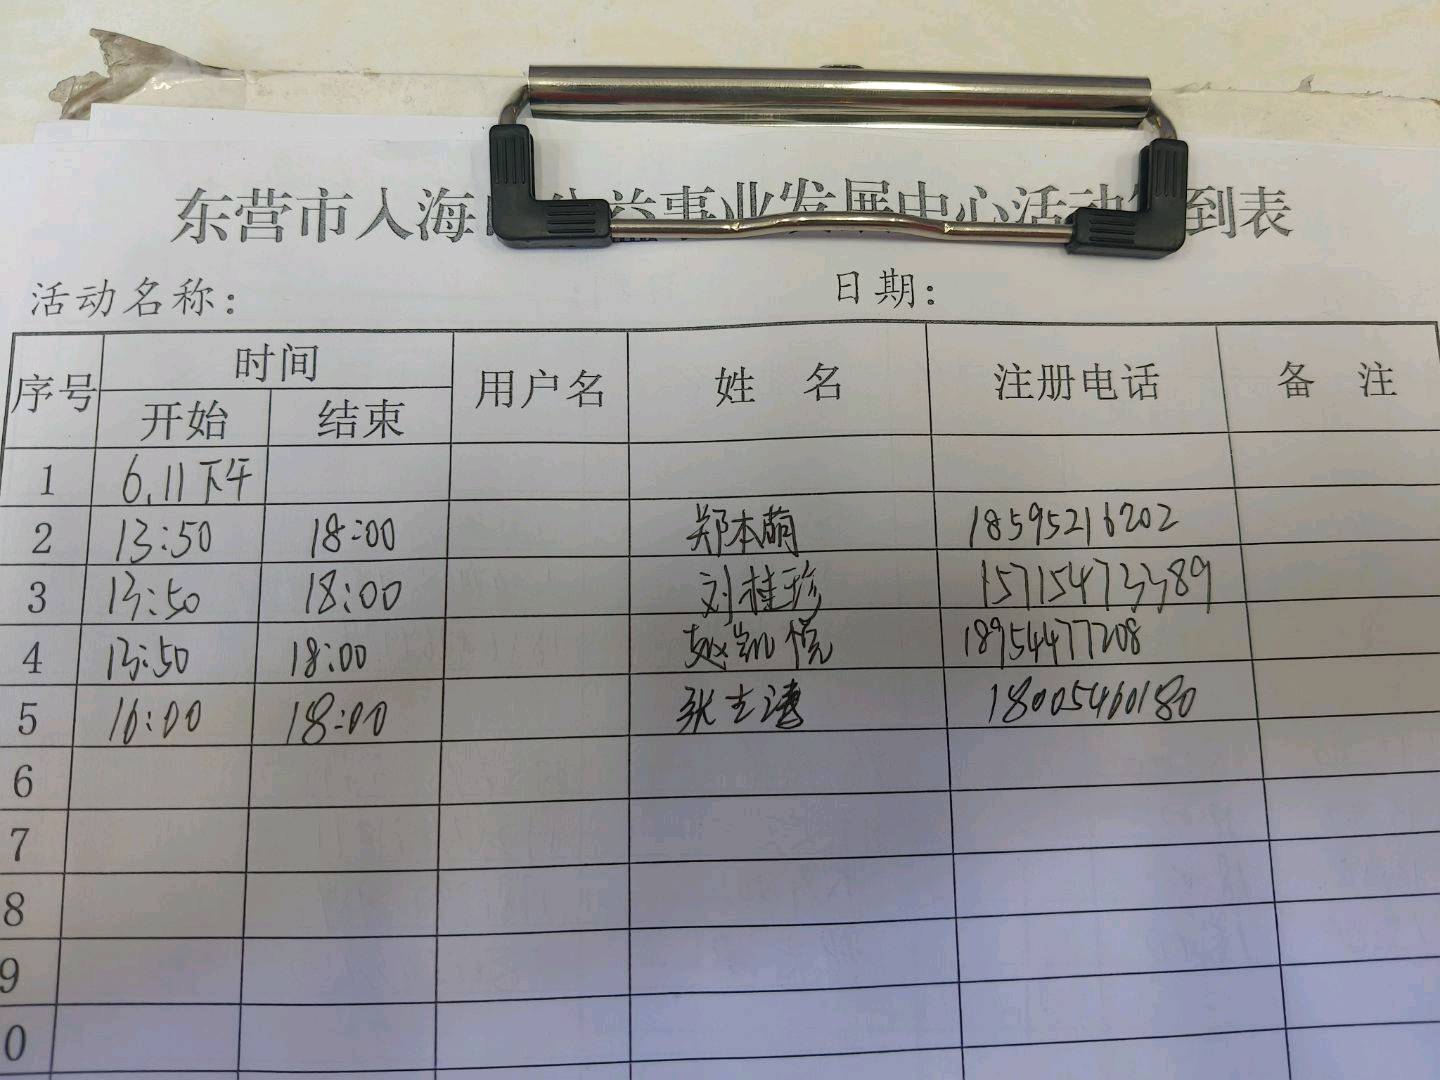 东营市入海口公益事业发展中心活动签到表
活动名称: 日期:
序号 时间 用户名 姓 名 注册电话 备 注
开始 结束
1 6.11下午
2 13:50 18:00 郑本萌 18595216202
3 13:50 18:00 刘桂珍 15715473389
4 13:50 18:00 赵凯悦 18954477208
5 16:00 18:00 张 18005460180
6
7
8
9
0